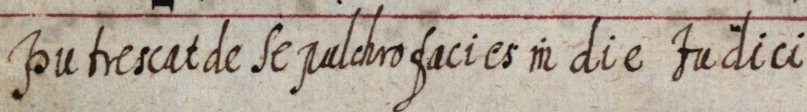 putrescat de sepulchro facies in die Judici